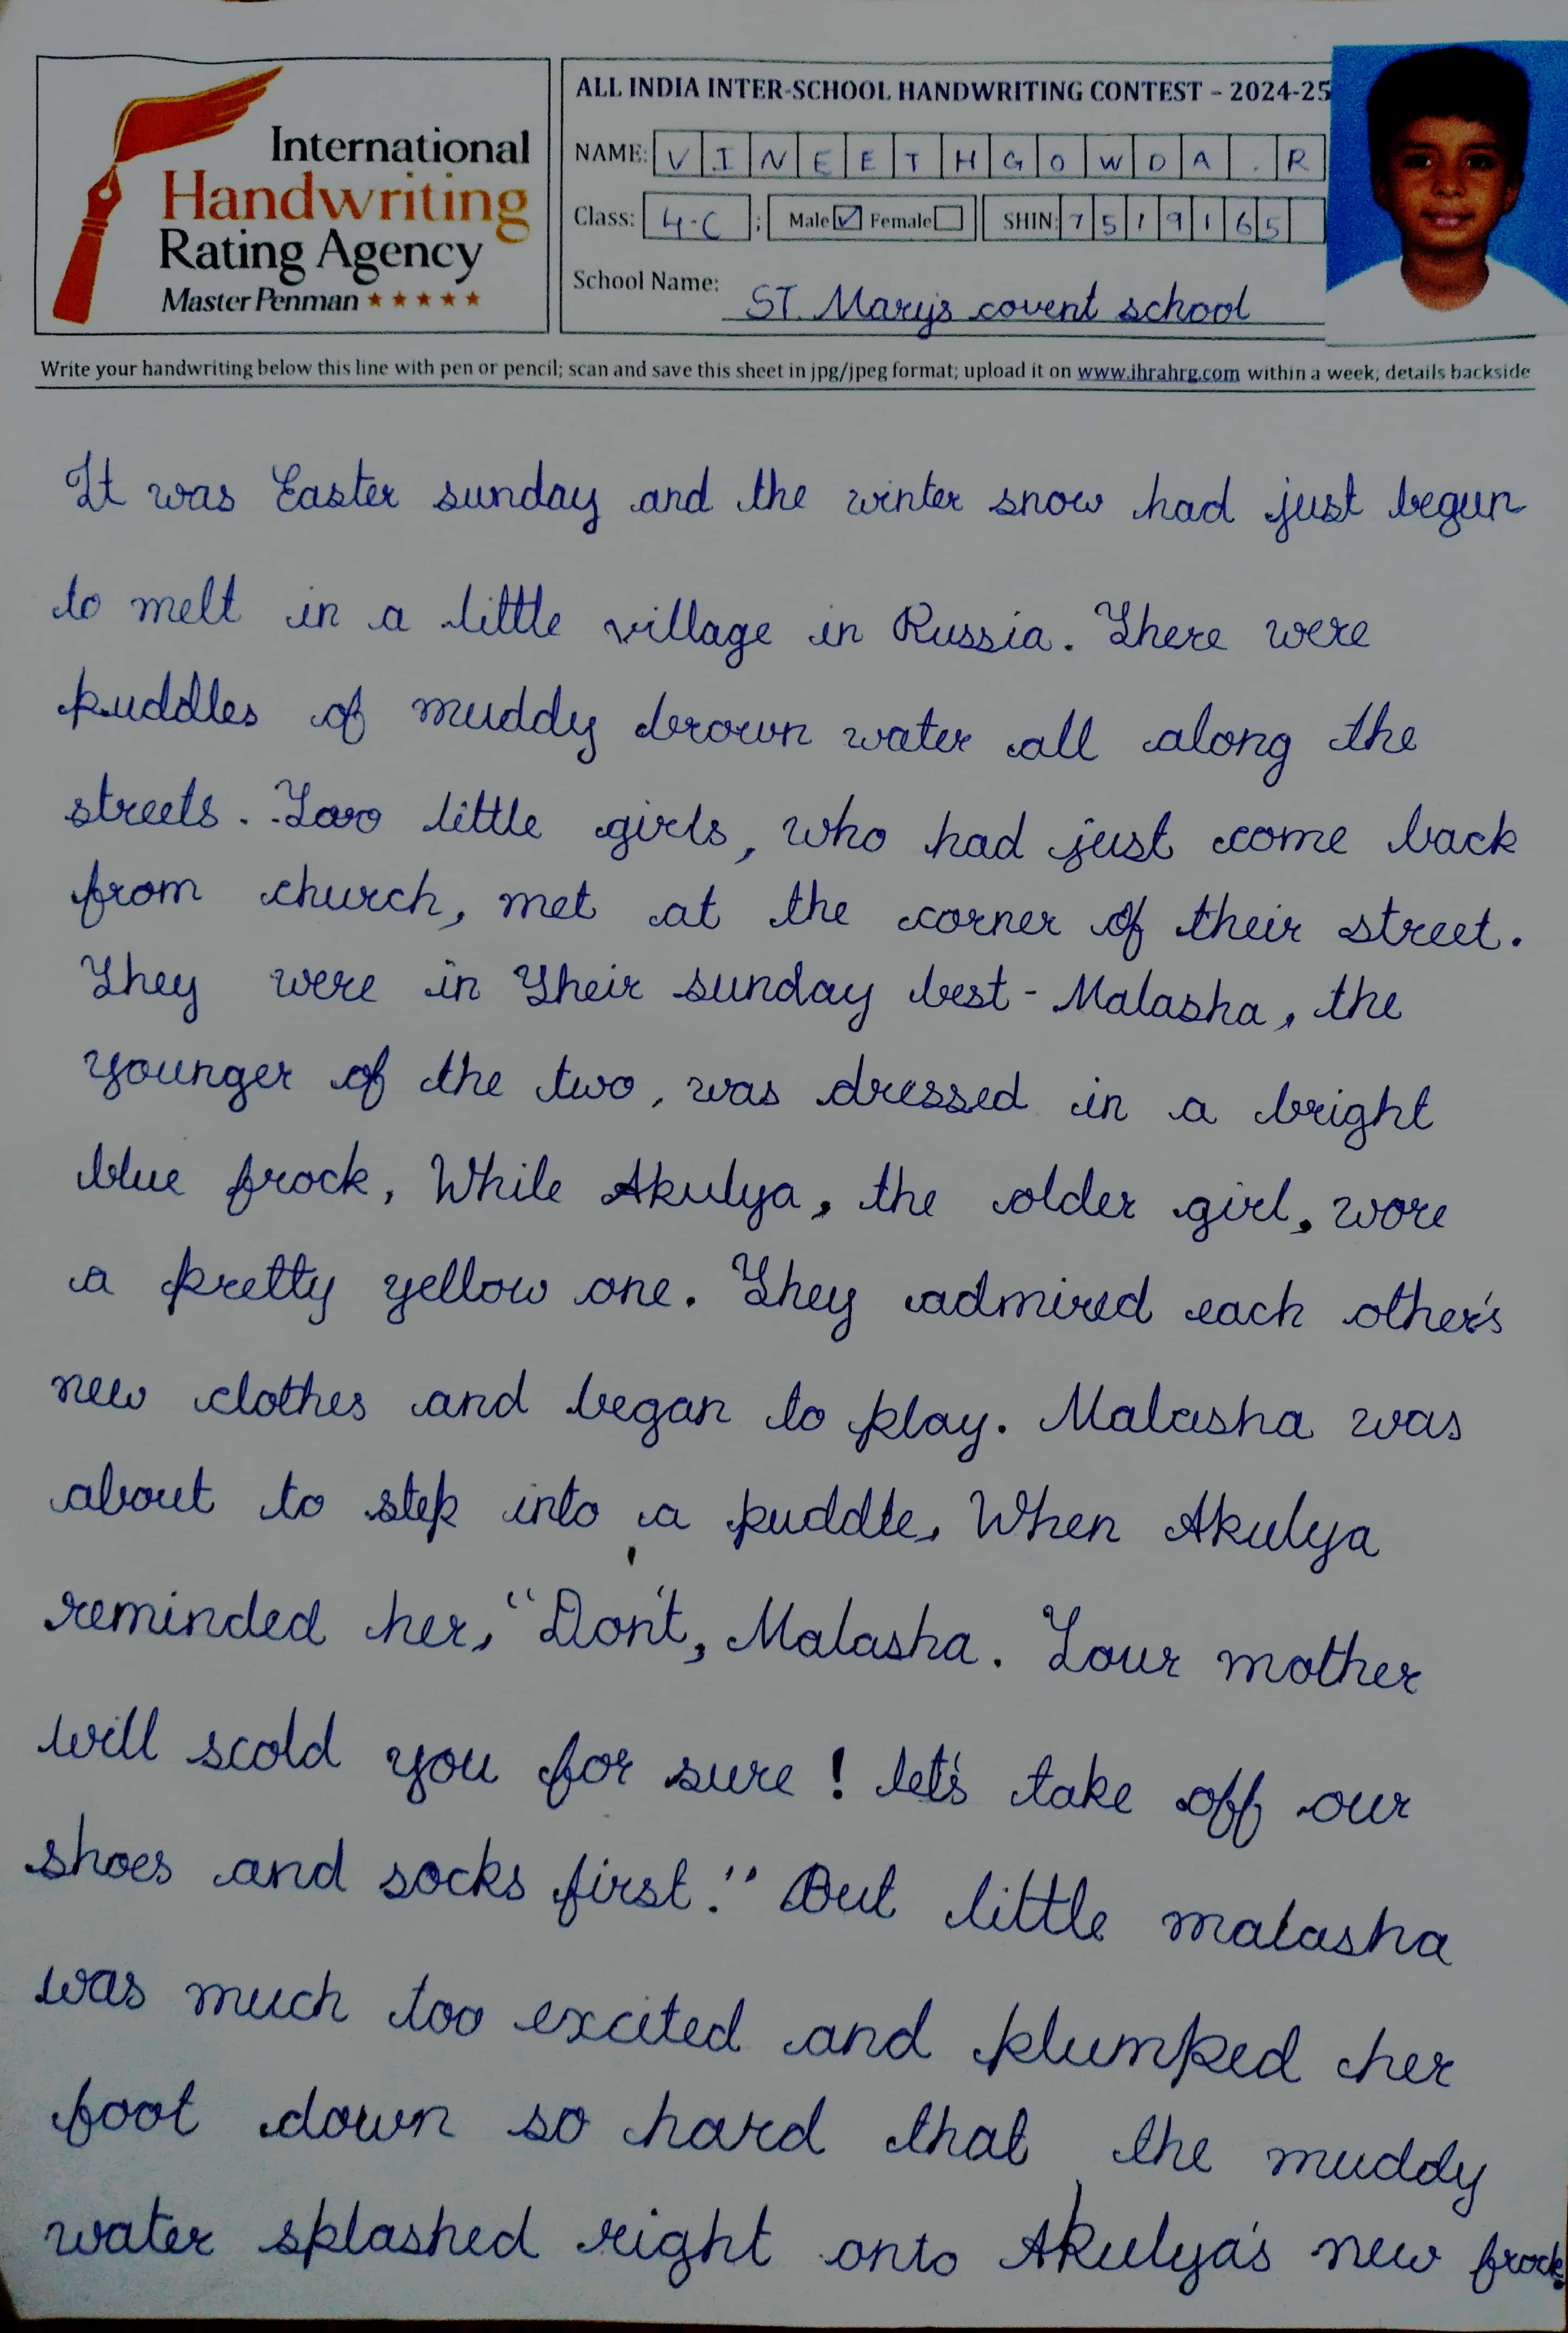 International
Handwriting
Rating Agency
Master Penman ★★★★★
ALL INDIA INTER-SCHOOL HANDWRITING CONTEST - 2024-25
NAME: VINEETHGOWDA.R
Class: 4-C ; Male ☑ Female ☐ SHIN: 7519165
School Name: ST. Mary's covent school
Write your handwriting below this line with pen or pencil; scan and save this sheet in jpg/jpeg format; upload it on www.ihrahrg.com within a week, details backside
It was Easter sunday and the winter snow had just begun
to melt in a little village in Russia. There were
puddles of muddy brown water all along the
streets. Two little girls, who had just come back
from church, met at the corner of their street.
They were in Their sunday best - Malasha, the
younger of the two, was dressed in a bright
blue frock, While Akulya, the older girl, wore
a pretty yellow one. They admired each other's
new clothes and began to play. Malasha was
about to step into a puddle, When Akulya
reminded her, "Don't, Malasha. Your mother
will scold you for sure! let's take off our
shoes and socks first." But little malasha
was much too excited and plumped her
foot down so hard that the muddy
water splashed right onto Akulya's new frock.